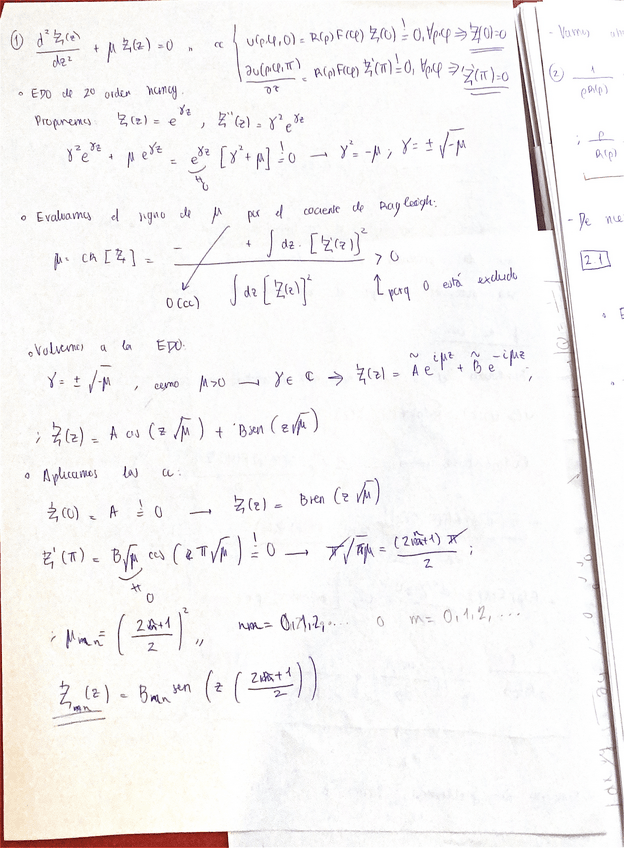 ① d²Z(z)/dz² + μ Z(z) = 0 ,, cc { U(ρ,φ,0) = R(ρ)F(φ) Z(0) =! 0, ∀ρ,φ ⇒ Z(0)=0
∂U(ρ,φ,π)/∂z = R(ρ)F(φ) Z'(π) =! 0, ∀ρ,φ ⇒ Z'(π)=0
∘ EDO de 2º orden homog.
Proponemos Z(z) = e^{γz} , Z''(z) = γ² e^{γz}
γ² e^{γz} + μ e^{γz} = e^{γz} [γ² + μ] =! 0 → γ² = -μ ; γ = ± √-μ
≠ 0
∘ Evaluamos el signo de μ por el cociente de Rayleigh:
μ = CR [Z] = (- + ∫ dz · [Z'(z)]²) / (∫ dz [Z(z)]²) > 0
0 (cc) porq 0 está excluido
∘ Volvemos a la EDO:
γ = ± √-μ , como μ>0 → γ ∈ ℂ → Z(z) = Ã e^{iμz} + B̃ e^{-iμz} ;
; Z(z) = A cos (z √μ) + B sen (z√μ)
∘ Aplicamos las cc:
Z(0) = A =! 0 → Z(z) = B sen (z √μ)
Z'(π) = B√μ cos (π √μ) =! 0 → π √μ = (2n+1) π / 2 ;
≠ 0
; μn = ((2n+1)/2)² ,, n = 0,1,2,... o m = 0,1,2, ...
Zn(z) = Bn sen (z ((2n+1)/2))
- Vamos
②
1
ρR(ρ)
; ρ
R(ρ)
- De
2.1